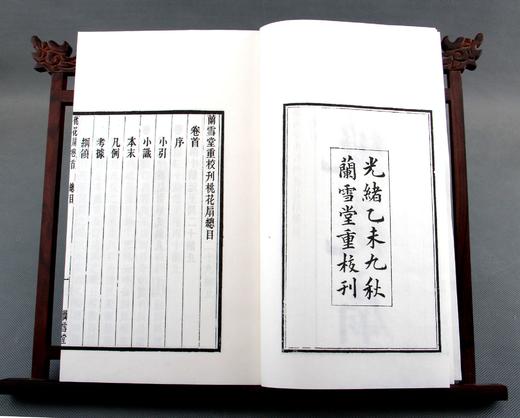 光緒乙未九秋
蘭雪堂重校刊
蘭雪堂重校刊桃花扇總目
卷首
序
小引
小識
本末
凡例
考據
綱領
桃花扇卷首 總目
一
蘭雪堂